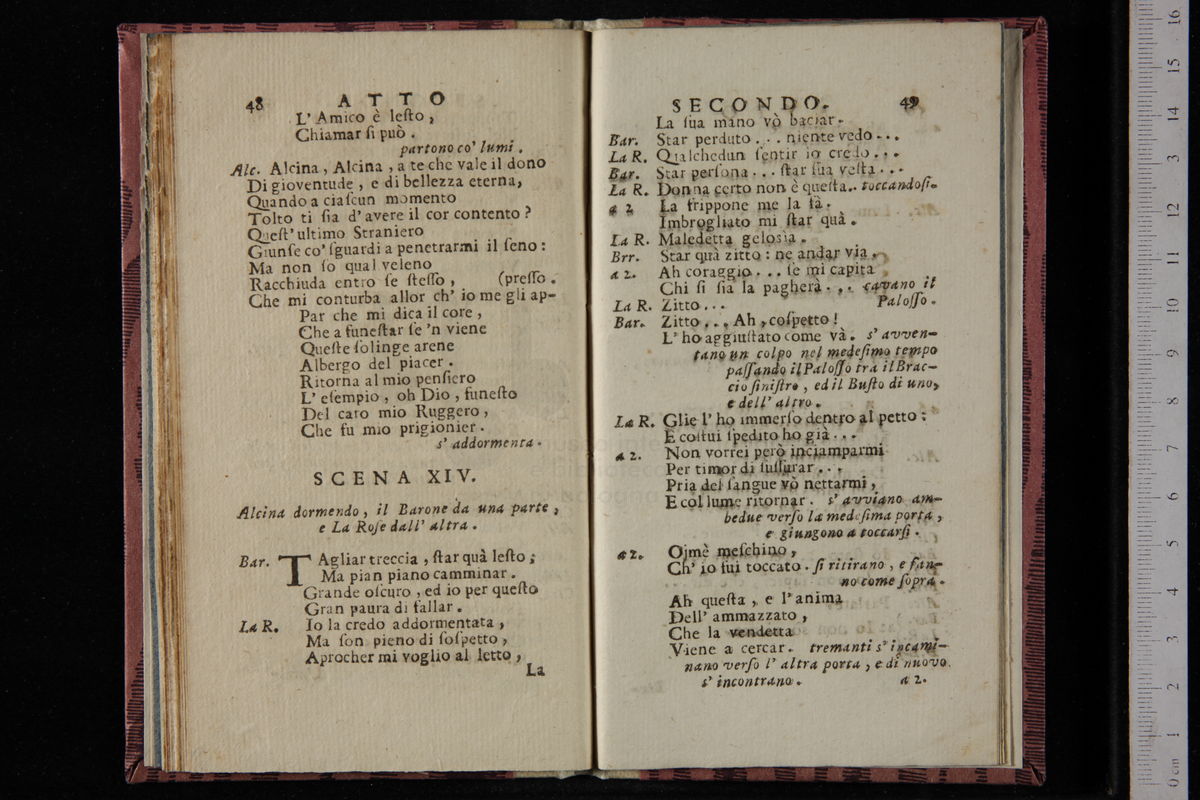 48 ATTO
L' Amico è leſto ,
Chiamar ſi può .
partono co' lumi .
Alc. Alcina , Alcina , a te che vale il dono
Di gioventude , e di bellezza eterna,
Quando a ciaſcun momento
Tolto ti ſia d' avere il cor contento ?
Queſt' ultimo Straniero
Giunſe co' ſguardi a penetrarmi il ſeno :
Ma non ſo qual veleno
Racchiuda entro ſe ſteſſo , (preſſo .
Che mi conturba allor ch' io me gli ap-
Par che mi dica il core ,
Che a funeſtar ſe 'n viene
Queſte ſolinge arene
Albergo del piacer .
Ritorna al mio penſiero
L' eſempio , oh Dio , funeſto
Del caro mio Ruggero ,
Che fu mio prigionier .
s' addormenta .
SCENA XIV.
Alcina dormendo , il Barone da una parte ,
e La Roſe dall' altra .
Bar. TAgliar treccia , ſtar quà leſto ;
Ma pian piano camminar .
Grande oſcuro , ed io per queſto
Gran paura di fallar .
La R. Io la credo addormentata ,
Ma ſon pieno di ſoſpetto ,
Aprocher mi voglio al letto ,
La
SECONDO. 49
La ſua mano vò baciar .
Bar. Star perduto . . . niente vedo . . .
La R. Qualchedun ſentir io credo . . .
Bar. Star perſona . . . ſtar ſua veſta . . .
La R. Donna certo non è queſta . . toccandoſi.
a 2 La frippone me la fà .
Imbrogliato mi ſtar quà .
La R. Maledetta gelosìa .
Brr. Star quà zitto : ne andar via .
a 2. Ah coraggio . . . ſe mi capita
Chi ſi ſia la pagherà . . . cavano il
La R. Zitto . . . Paloſſo .
Bar. Zitto . . . Ah , coſpetto !
L' ho aggiuſtato come và . s' avven-
tano un colpo nel medeſimo tempo
paſſando il Paloſſo tra il Brac-
cio ſiniſtro , ed il Buſto di uno,
e dell' altro .
La R. Glie l' ho immerſo dentro al petto :
E coſtui ſpedito ho già . . .
a 2. Non vorrei però inciamparmi
Per timor di ſuſſurar . . .
Pria del ſangue vò nettarmi ,
E col lume ritornar . s' avviano am-
bedue verſo la medeſima porta ,
e giungono a toccarſi .
a 2. Ojmè meſchino ,
Ch' io fui toccato . ſi ritirano , e fan-
no come ſopra .
Ah queſta , e l' anima
Dell' ammazzato ,
Che la vendetta
Viene a cercar . tremanti s' incami-
nano verſo l' altra porta , e di nuovo
s' incontrano . a 2.
0 cm 1 2 3 4 5 6 7 8 9 10 11 12 13 14 15 16